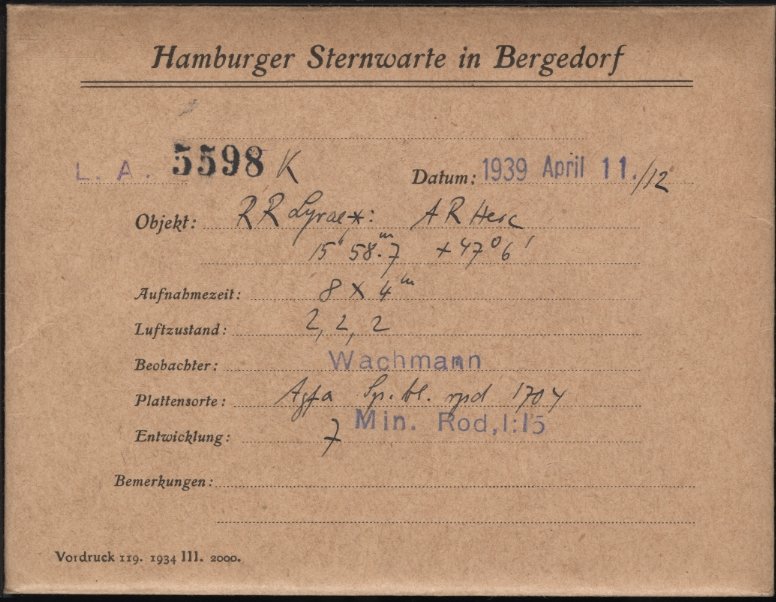 Hamburger Sternwarte in Bergedorf
L. A. 5598 K Datum: 1939 April 11./12
Objekt: RR Lyrae*: AR Herc
15h 58.m7 +47°6'
Aufnahmezeit: 8 x 4m
Luftzustand: 2, 2, 2
Beobachter: Wachmann
Plattensorte: Agfa Sp. bl. rpd 1704
Entwicklung: 7 Min. Rod, 1:15
Bemerkungen:
Vordruck 119. 1934 III. 2000.